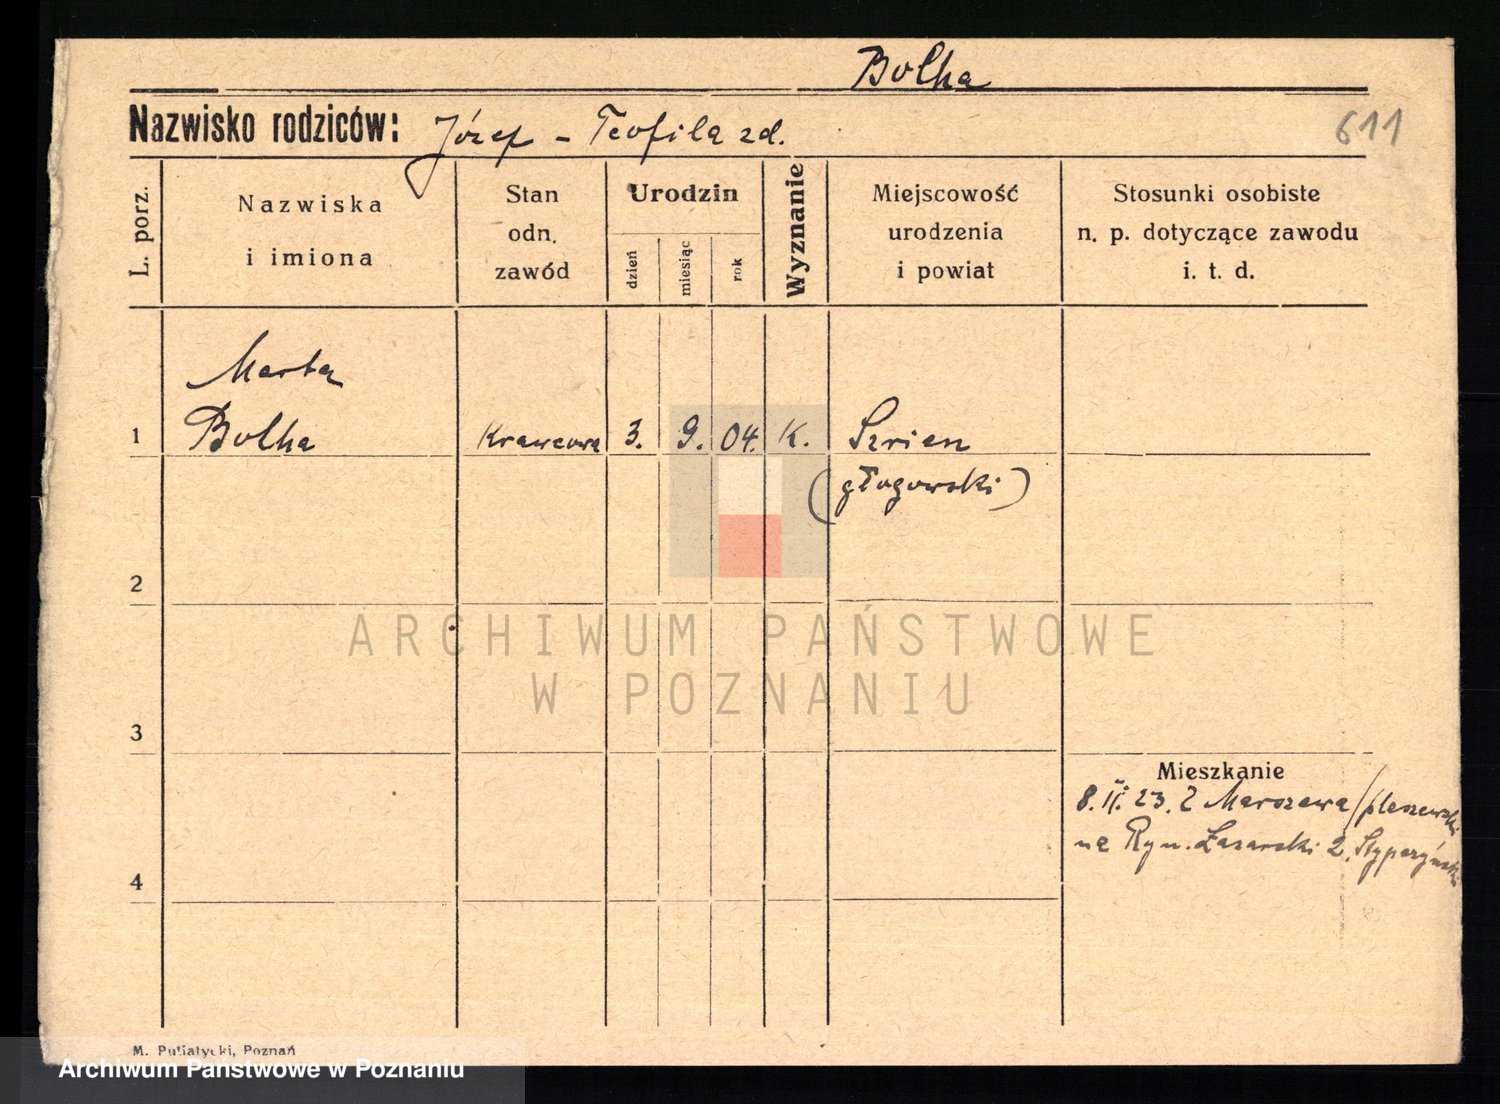 Bolha
Nazwisko rodziców: Józef - Teofila zd.
611
L. porz.
Nazwiska
i imiona
Stan
odn.
zawód
Urodzin
dzień
miesiąc
rok
Wyznanie
Miejscowość
urodzenia
i powiat
Stosunki osobiste
n. p. dotyczące zawodu
i. t. d.
Marta
1 Bolha Krawcowa 3. 9. 04. K. Szrien
(głogowski)
2
ARCHIWUM PAŃSTWOWE
W POZNANIU
3
Mieszkanie
8. II. 23. Z Marszewa /pleszewski
na Ryn. Łazarski 2.
4
M. Putiatycki, Poznań
Archiwum Państwowe w Poznaniu